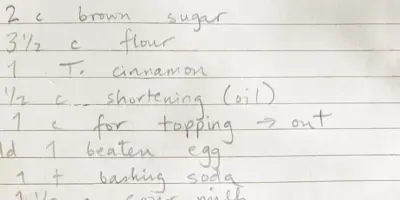 2 c brown sugar
3 1/2 c flour
1 T. cinnamon
1/2 c shortening (oil)
1 c for topping → out
1 beaten egg
1 t baking soda